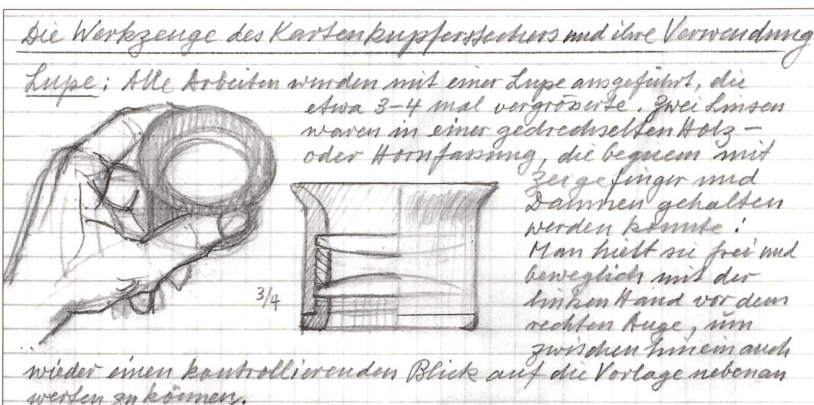 Die Werkzeuge des Kartenkupferstechers und ihre Verwendung
Lupe: Alle Arbeiten wurden mit einer Lupe ausgeführt, die
etwa 3-4 mal vergrösserte. Zwei Linsen
waren in einer gedrechselten Holz-
oder Hornfassung, die bequem mit
Zeigefinger und
Daumen gehalten
werden konnte.
Man hielt sie frei und
beweglich mit der
linken Hand vor dem
rechten Auge, um
zwischenhinein auch
3/4
wieder einen kontrollierenden Blick auf die Vorlage nebenan
werfen zu können.